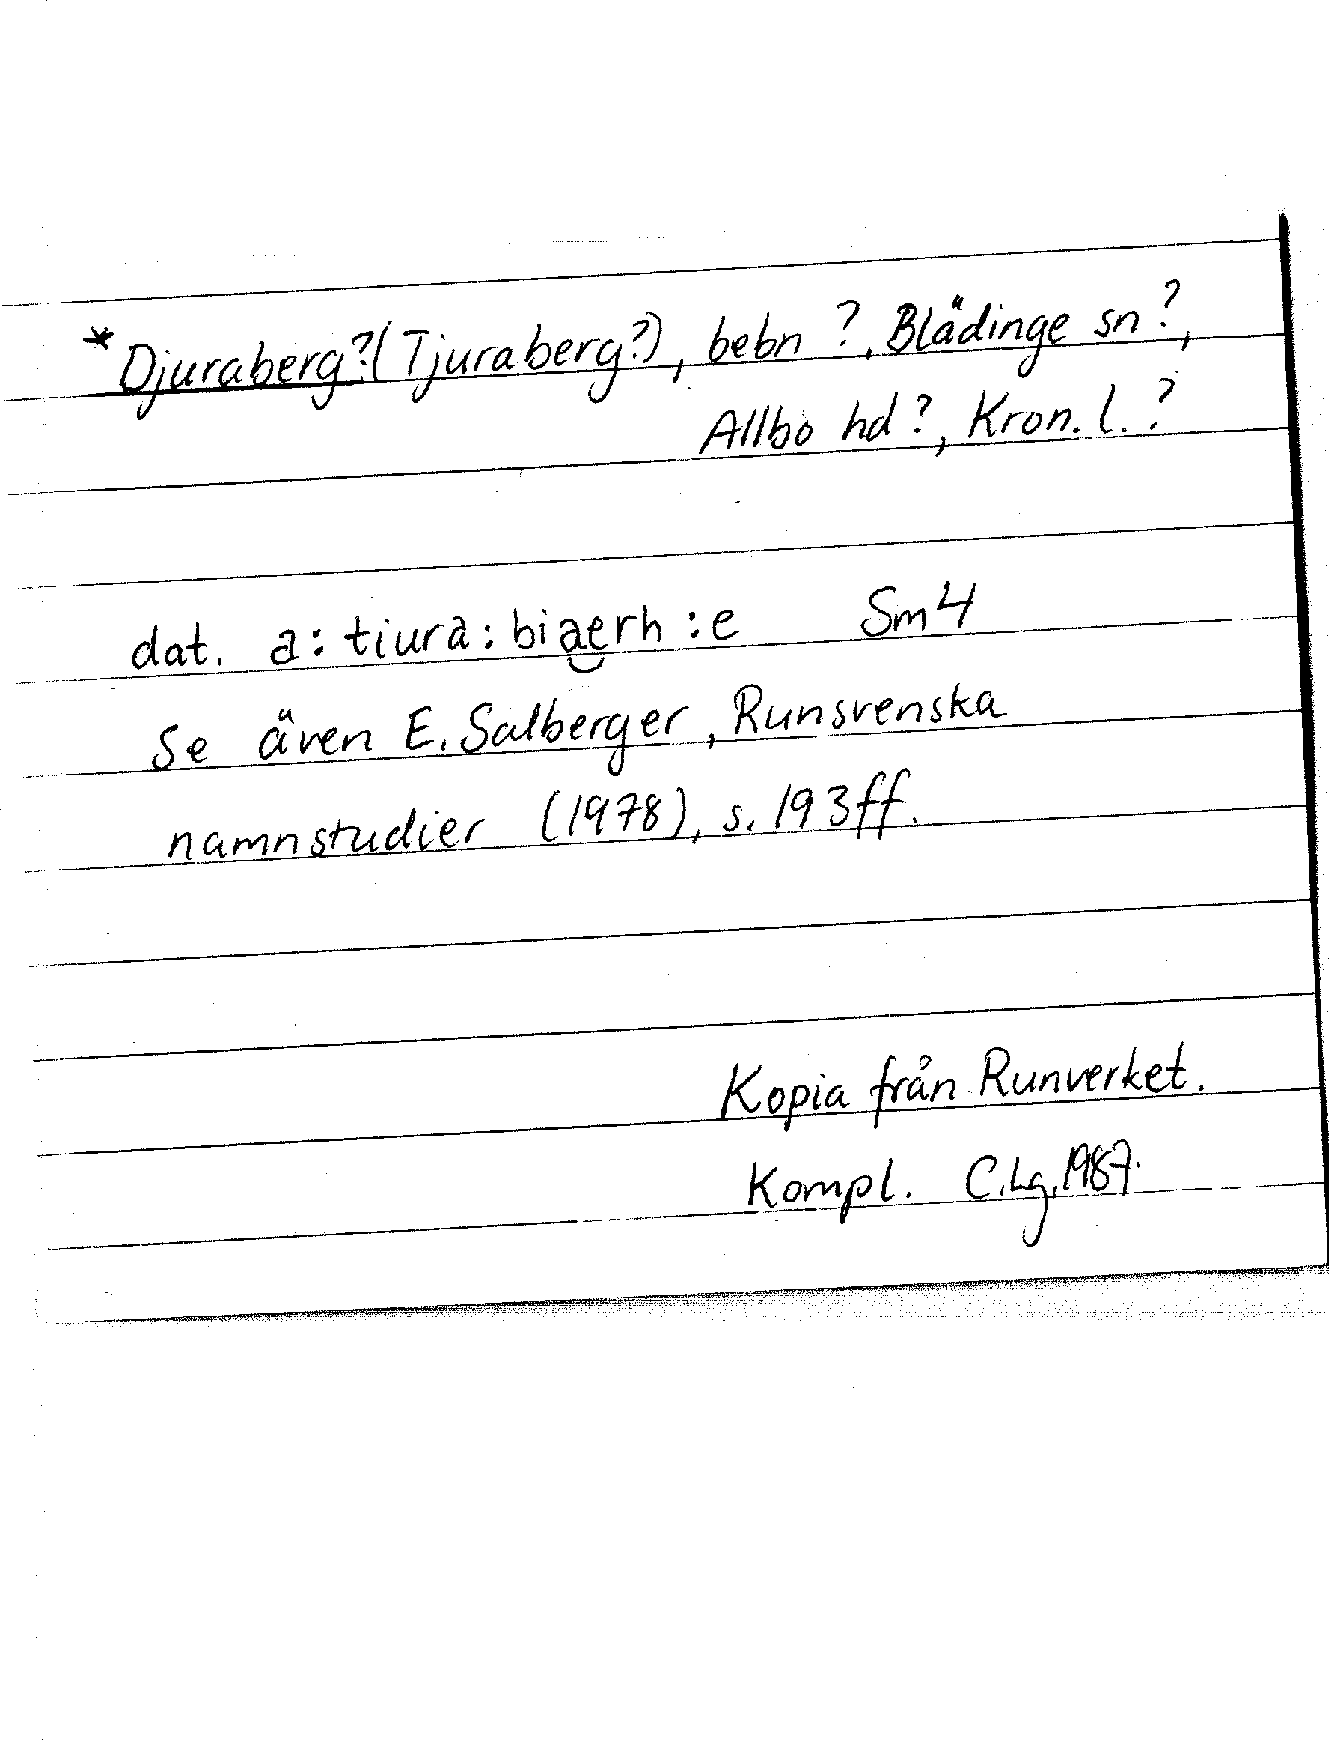 *Djuraberg? (Tjuraberg?), bebn ?, Blädinge sn?,
Allbo hd?, Kron. l. ?
dat. a: tiura : biaerh :e Sm 4
Se även E. Salberger, Runsvenska
namnstudier (1978), s. 193ff.
Kopia från Runverket.
Kompl. C.Lg. 1987.